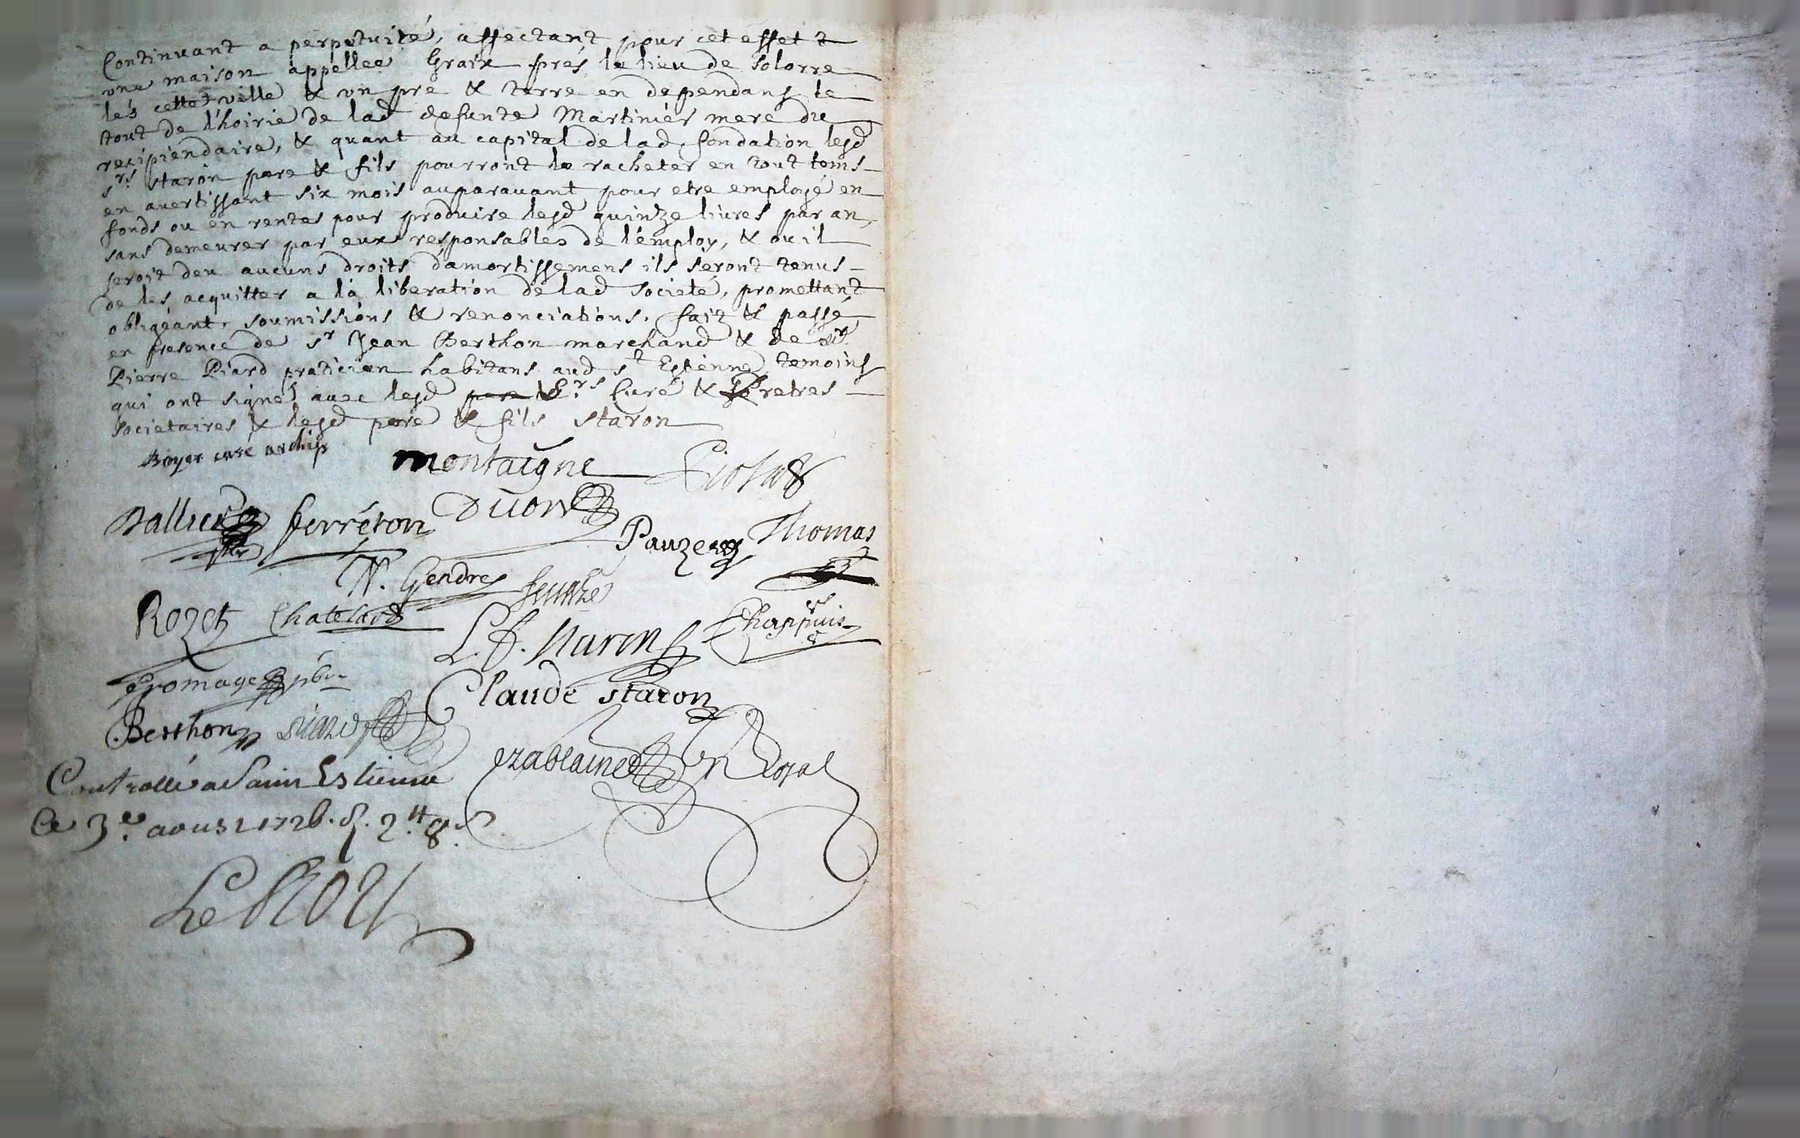 Continuant a perpetuité, affectant pour cet effet
une maison appellee Graix prés le lieu de Solorre
lés cette ville & un pre & terre en dependans le
tout de l'hoirie de lad defunte Martinier mere du
recipiendaire, & quant au capital de lad fondation lesd
srs staron pere & fils pourront le racheter en tout tems
en avertissant six mois auparavant pour etre employé en
fonds ou en rentes pour produire lesd quinze livres par an,
sans demeurer par eux responsables de l'employ, & ou il
seroit deu aucuns droits d'amortissemens ils seront tenus
de les acquitter a la liberation de lad societé, promettant
obligéant, soumissions & renonciations. fait & passé
en presence de sr Jean Berthon marchand & de sr
Pierre Piard praticien habitans aud st Estienne temoins
qui ont signé avec lesd srs Curé & Pretres
societaires & lesd pere & fils staron
Boyer curé archip
montaigne
Dallier ferréton
Pauze Thomas
N. Gendre
Rozet Chatelard
L. f. Staron Chappuis
fromage pbre
Claude staron
Berthon piard
Controllé a Saint Estienne
Ce 3e aoust 1726. R. 2 8